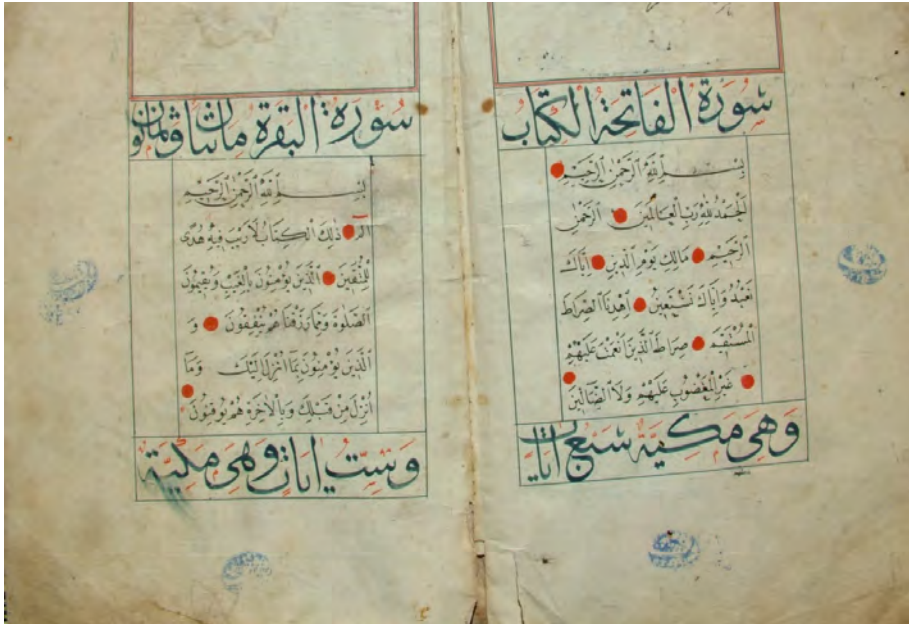 سُورَةُ الْفَاتِحَةِ الْكِتَابِ
بِسْمِ اللَّهِ الرَّحْمَٰنِ الرَّحِيمِ
اَلْحَمْدُ لِلَّهِ رَبِّ الْعَالَمِينَ الرَّحْمَٰنِ
الرَّحِيمِ مَالِكِ يَوْمِ الدِّينِ اِيَّاكَ
نَعْبُدُ وَاِيَّاكَ نَسْتَعِينُ اِهْدِنَا الصِّرَاطَ
الْمُسْتَقِيمَ صِرَاطَ الَّذِينَ اَنْعَمْتَ عَلَيْهِمْ
غَيْرِ الْمَغْضُوبِ عَلَيْهِمْ وَلَا الضَّالِّينَ
وَهِيَ مَكِّيَّة سَبْعُ اٰيَاتٍ
سُورَةُ الْبَقَرَةِ مِائَتَانِ وَثَمَانُونَ
بِسْمِ اللَّهِ الرَّحْمَٰنِ الرَّحِيمِ
الٓمٓ ذٰلِكَ الْكِتَابُ لَا رَيْبَ فِيهِ هُدًى
لِلْمُتَّقِينَ الَّذِينَ يُؤْمِنُونَ بِالْغَيْبِ وَيُقِيمُونَ
الصَّلٰوةَ وَمِمَّا رَزَقْنَاهُمْ يُنْفِقُونَ وَ
الَّذِينَ يُؤْمِنُونَ بِمَا اُنْزِلَ اِلَيْكَ وَمَا
اُنْزِلَ مِنْ قَبْلِكَ وَبِالْاٰخِرَةِ هُمْ يُوقِنُونَ
وَسِتُّ اٰيَاتٍ وَهِيَ مَكِّيَّة